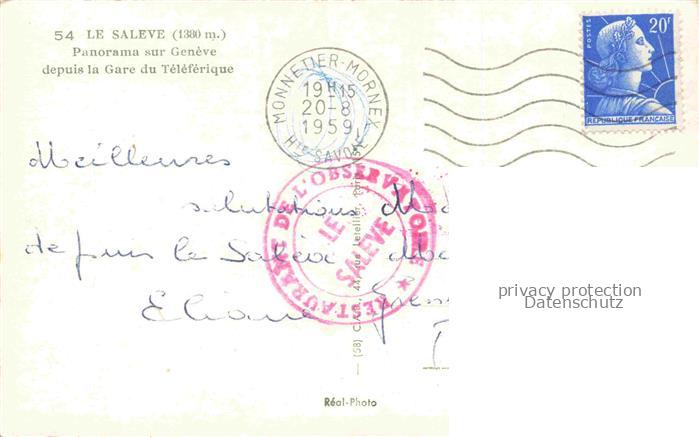 54 LE SALEVE (1380 m.)
Panorama sur Genève
depuis la Gare du Téléférique
MONNETIER-MORNEX
19H15
20-8
1959
Hte SAVOIE
POSTES
20f
REPUBLIQUE FRANÇAISE
Meilleures
salutations
depuis le Salève
Eliane
RESTAURANT DE L'OBSERVATOIRE
LE
SALÈVE
44, rue Letellier
(58)
privacy protection
Datenschutz
Réal-Photo